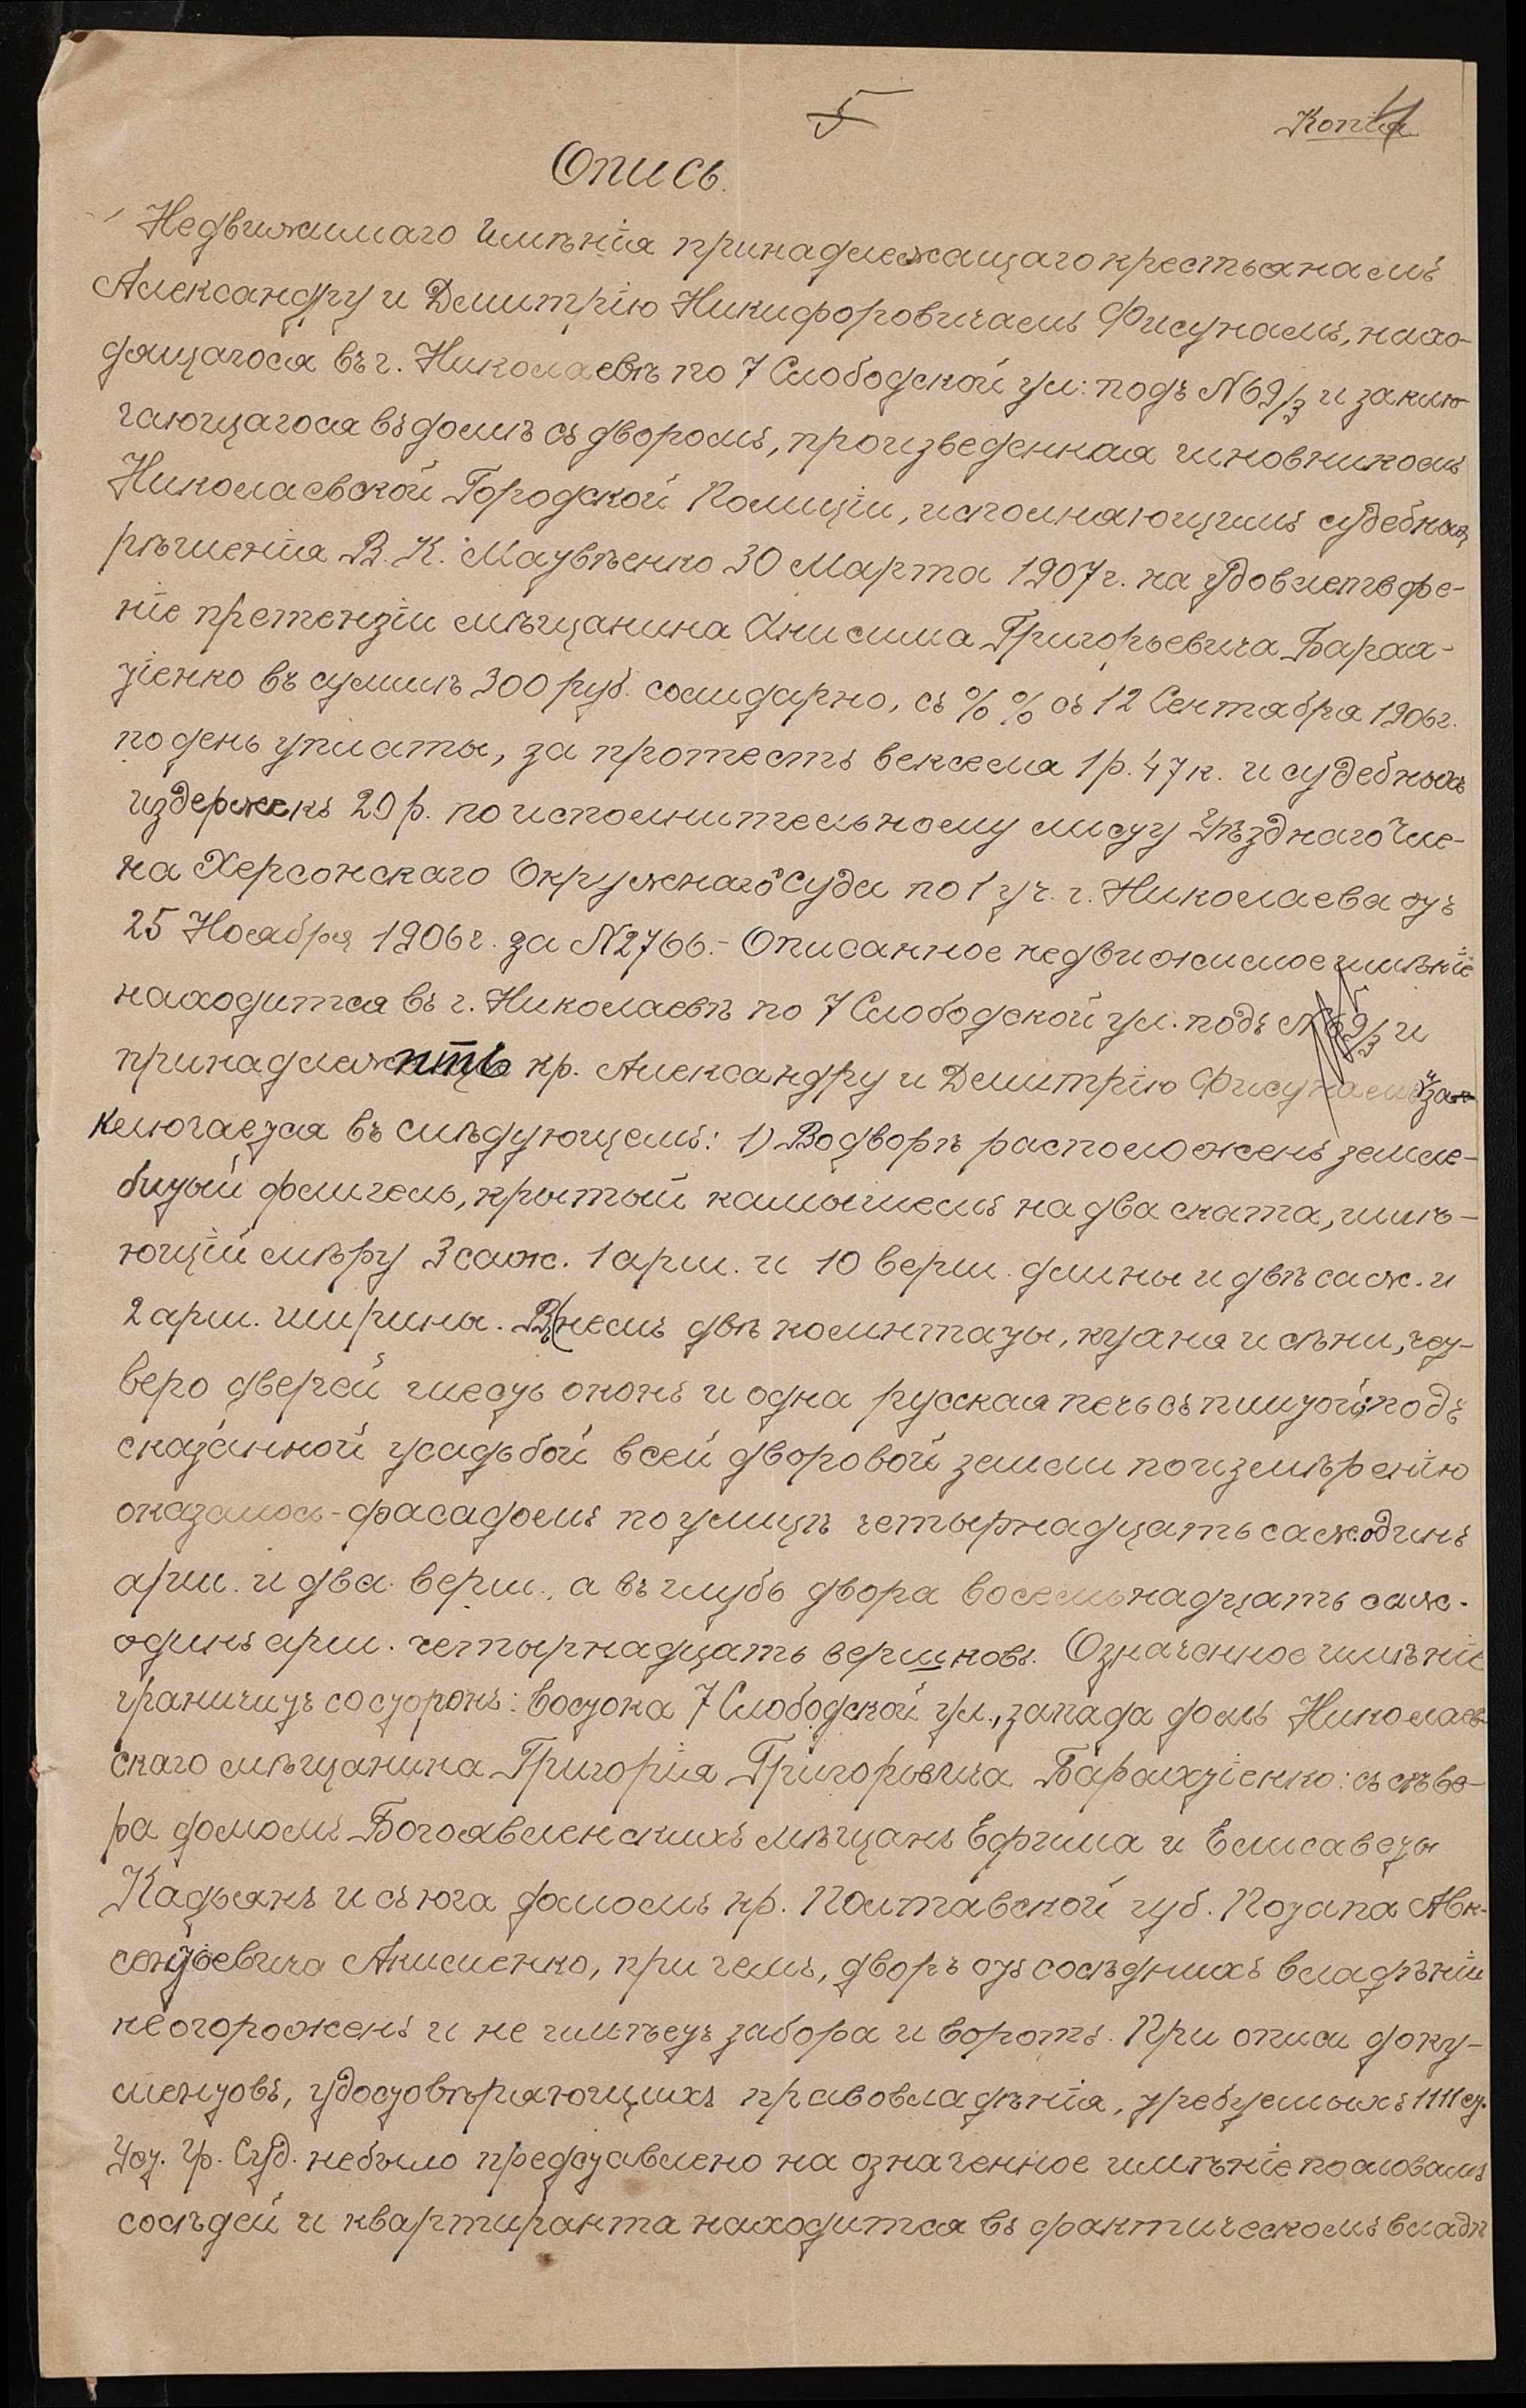 5
Копія 4
Опись.
Недвижимаго имѣнія принадлежащаго крестьянамъ
Александру и Дмитрію Никифоровичамъ Фисунамъ, нахо-
дящагося въ г. Николаевѣ по 7 Слободской ул: подъ №69/3 и заклю-
чающагося въ домѣ съ дворомъ, произведенная чиновникомъ
Николаевской Городской Полиціи, исполняющимъ судебныя
рѣшенія В. К. 30 Марта 1907 г. на удовлетворе-
ніе претензіи мѣщанина Анисима Григорьевича Барах-
тіенко въ суммѣ 300 руб. солидарно, съ % % съ 12 Сентября 1906 г.
по день уплаты, за протестъ векселя 1 р. 47 к. и судебныхъ
издержекъ 20 р. по исполнительному листу Уѣзднаго Чле-
на Херсонскаго Окружнаго Суда по 1 уч. г. Николаева отъ
25 Ноября 1906 г. за №2766.- Описанное недвижимое имѣніе
находится въ г. Николаевѣ по 7 Слободской ул. подъ №69/3 и
кр. Александру и Дмитрію Фисунамъ и за-
ключается въ слѣдующемъ: 1) Во дворѣ расположенъ земле-
битый флигель, крытый камышемъ на два ската, имѣ-
ющій мѣру 3 саж. 1 арш. и 10 верш. длины и двѣ саж. и
2 арш. ширины. Въ немъ двѣ комнтаты, кухня и сѣни, чет-
веро дверей шесть оконъ и одна русская печь съ плитой, подъ
сказанной усадьбой всей дворовой земли по измѣренію
оказалось - фасадомъ по улицѣ четырнадцать саж. одинъ
арш. и два верш., а въ глубь двора восемьнадцать саж.
одинъ арш. четырнадцать вершковъ. Означенное имѣніе
граничитъ со сторонъ: востока 7 Слободской ул., запада домъ Николаев-
скаго мѣщанина Григорія Григорьевича Барахтіенко: съ сѣве-
ра домомъ Богоявленскихъ мѣщанъ Ефима и Елисаветы
Кадьянъ и съ юга домомъ кр. Полтавской губ. Потапа Авк-
сентьевича Анисменко, при чемъ, дворъ отъ сосѣднихъ владѣній
не огороженъ и не имѣетъ забора и воротъ. При описи доку-
ментовъ, удостовѣряющихъ право владѣнія, требуемыхъ 1111 ст.
Уст. Гр. Суд. не было представлено на означенное имѣніе по словамъ
сосѣдей и квартиранта находится въ фактическомъ владѣ